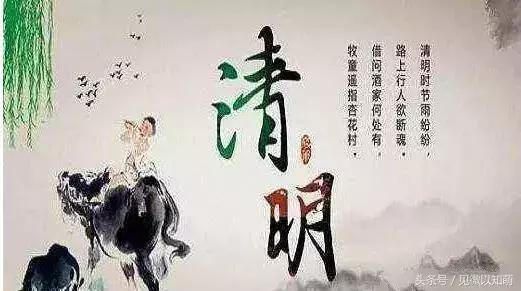 清明
清明时节雨纷纷，
路上行人欲断魂。
借问酒家何处有，
牧童遥指杏花村。
头条号 / 见微以知